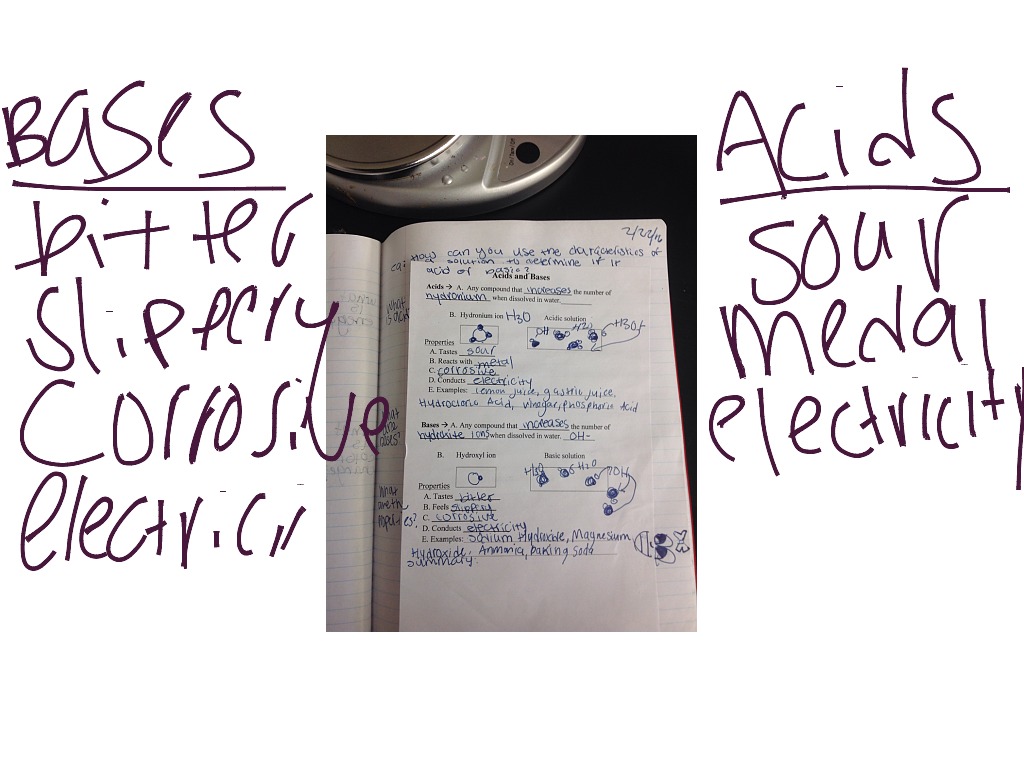 Bases
bitter
Slippery
Corrosive
electrici
Acids
sour
medal
electricity
2/22/16
How can you use the characteristics of
a solution to determine if it
acid or basic?
Acids and Bases
Acids → A. Any compound that increases the number of
hydronium when dissolved in water.
B. Hydronium ion H3O Acidic solution
OH H2O H3O+
Properties
A. Tastes sour
B. Reacts with metal
C. corrosive
D. Conducts electricity
E. Examples: lemon juice, gastric juice,
Hydrocloric Acid, vinegar, phosphoric Acid
Bases → A. Any compound that increases the number of
hydroxite ions when dissolved in water. OH-
B. Hydroxyl ion Basic solution
H3O H2O OH
Properties
A. Tastes bitter
B. Feels slippery
C. corrosive
D. Conducts electricity
E. Examples: Sodium Hydroxide, Magnesium
Hydroxide, Ammonia, baking soda
summary
What